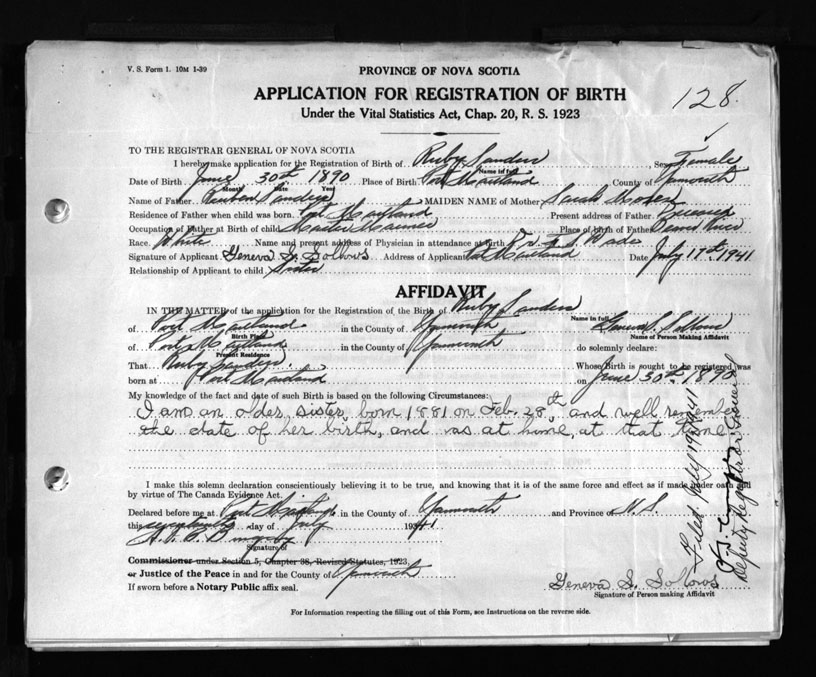 V. S. Form 1. 10M 1-39
PROVINCE OF NOVA SCOTIA
APPLICATION FOR REGISTRATION OF BIRTH
128.
Under the Vital Statistics Act, Chap. 20, R. S. 1923
TO THE REGISTRAR GENERAL OF NOVA SCOTIA
I hereby make application for the Registration of Birth of Ruby Sanders Sex Female
Name in full
Date of Birth June 30th 1890 Place of Birth Port Maitland County of Yarmouth
Month Date Year
Name of Father Reuben Sanders MAIDEN NAME of Mother Sarah
Residence of Father when child was born Port Maitland Present address of Father Deceased
Occupation of Father at Birth of child Master Mariner Place of birth of Father Beaver River
Race White Name and present address of Physician in attendance at birth Dr. Wade
Signature of Applicant Geneva S. Sollows Address of Applicant Pt. Maitland Date July 17th 1941
Relationship of Applicant to child Sister
AFFIDAVIT
IN THE MATTER of the application for the Registration, of the Birth of Ruby Sanders
Name in full
of Port Maitland in the County of Yarmouth Geneva S. Sollows
Birth Place Name of Person Making Affidavit
of Port Maitland in the County of Yarmouth do solemnly declare:
Present Residence
That Ruby Sanders Whose Birth is sought to be registered was
born at Port Maitland on June 30th 1890
My knowledge of the fact and date of such Birth is based on the following Circumstances:
I am an older sister, born 1881 on Feb. 28th, and well remember
the date of her birth, and was at home, at that time
I make this solemn declaration conscientiously believing it to be true, and knowing that it is of the same force and effect as if made under oath and
by virtue of The Canada Evidence Act.
Declared before me at Port Maitland in the County of Yarmouth and Province of N. S.
this seventeenth day of July 1941
Signature of
Commissioner under Section 5, Chapter 38, Revised Statutes, 1923,
or Justice of the Peace in and for the County of Yarmouth
If sworn before a Notary Public affix seal.
Geneva S. Sollows
Signature of Person making Affidavit
For Information respecting the filling out of this Form, see Instructions on the reverse side.
Filed July 19th 1941
Deputy Registrar General